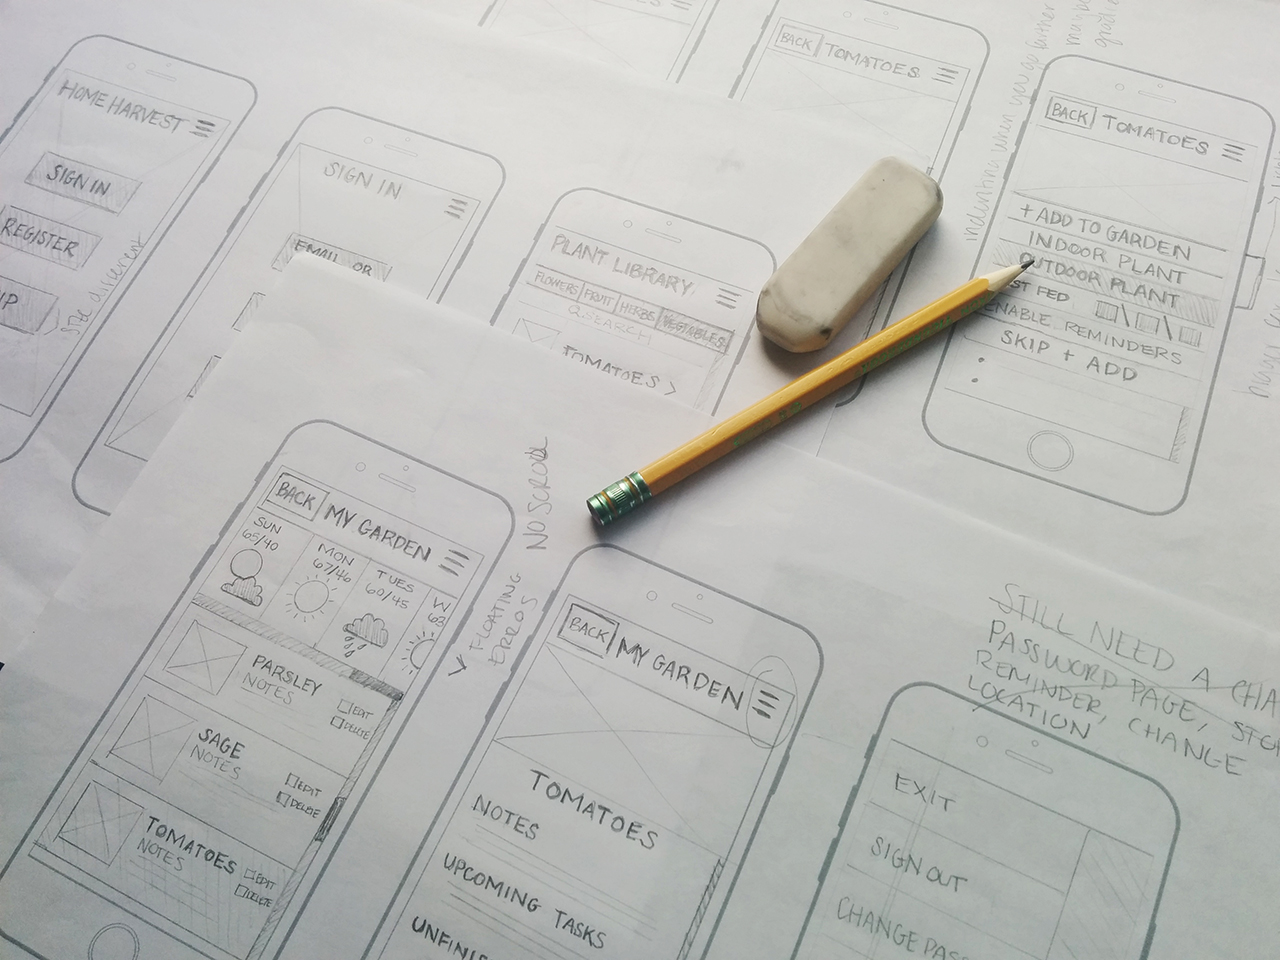 HOME HARVEST
SIGN IN
REGISTER
SIGN IN
EMAIL OR
PLANT LIBRARY
FLOWERS FRUIT HERBS VEGETABLES
SEARCH
TOMATOES >
BACK TOMATOES
indenting when you go further
maybe
BACK TOMATOES
+ ADD TO GARDEN
INDOOR PLANT
OUTDOOR PLANT
ST FED
ENABLE REMINDERS
SKIP + ADD
BACK MY GARDEN
SUN
65/40
MON
67/46
TUES
60/45
W
63
PARSLEY
NOTES
EDIT
DELETE
SAGE
NOTES
EDIT
DELETE
TOMATOES
NOTES
EDIT
DELETE
NO SCROLL
FLOATING
BACK MY GARDEN
TOMATOES
NOTES
UPCOMING TASKS
UNFINIS
STILL NEED A CHA
PASSWORD PAGE,
REMINDER, CHANGE
LOCATION
EXIT
SIGN OUT
CHANGE PAS